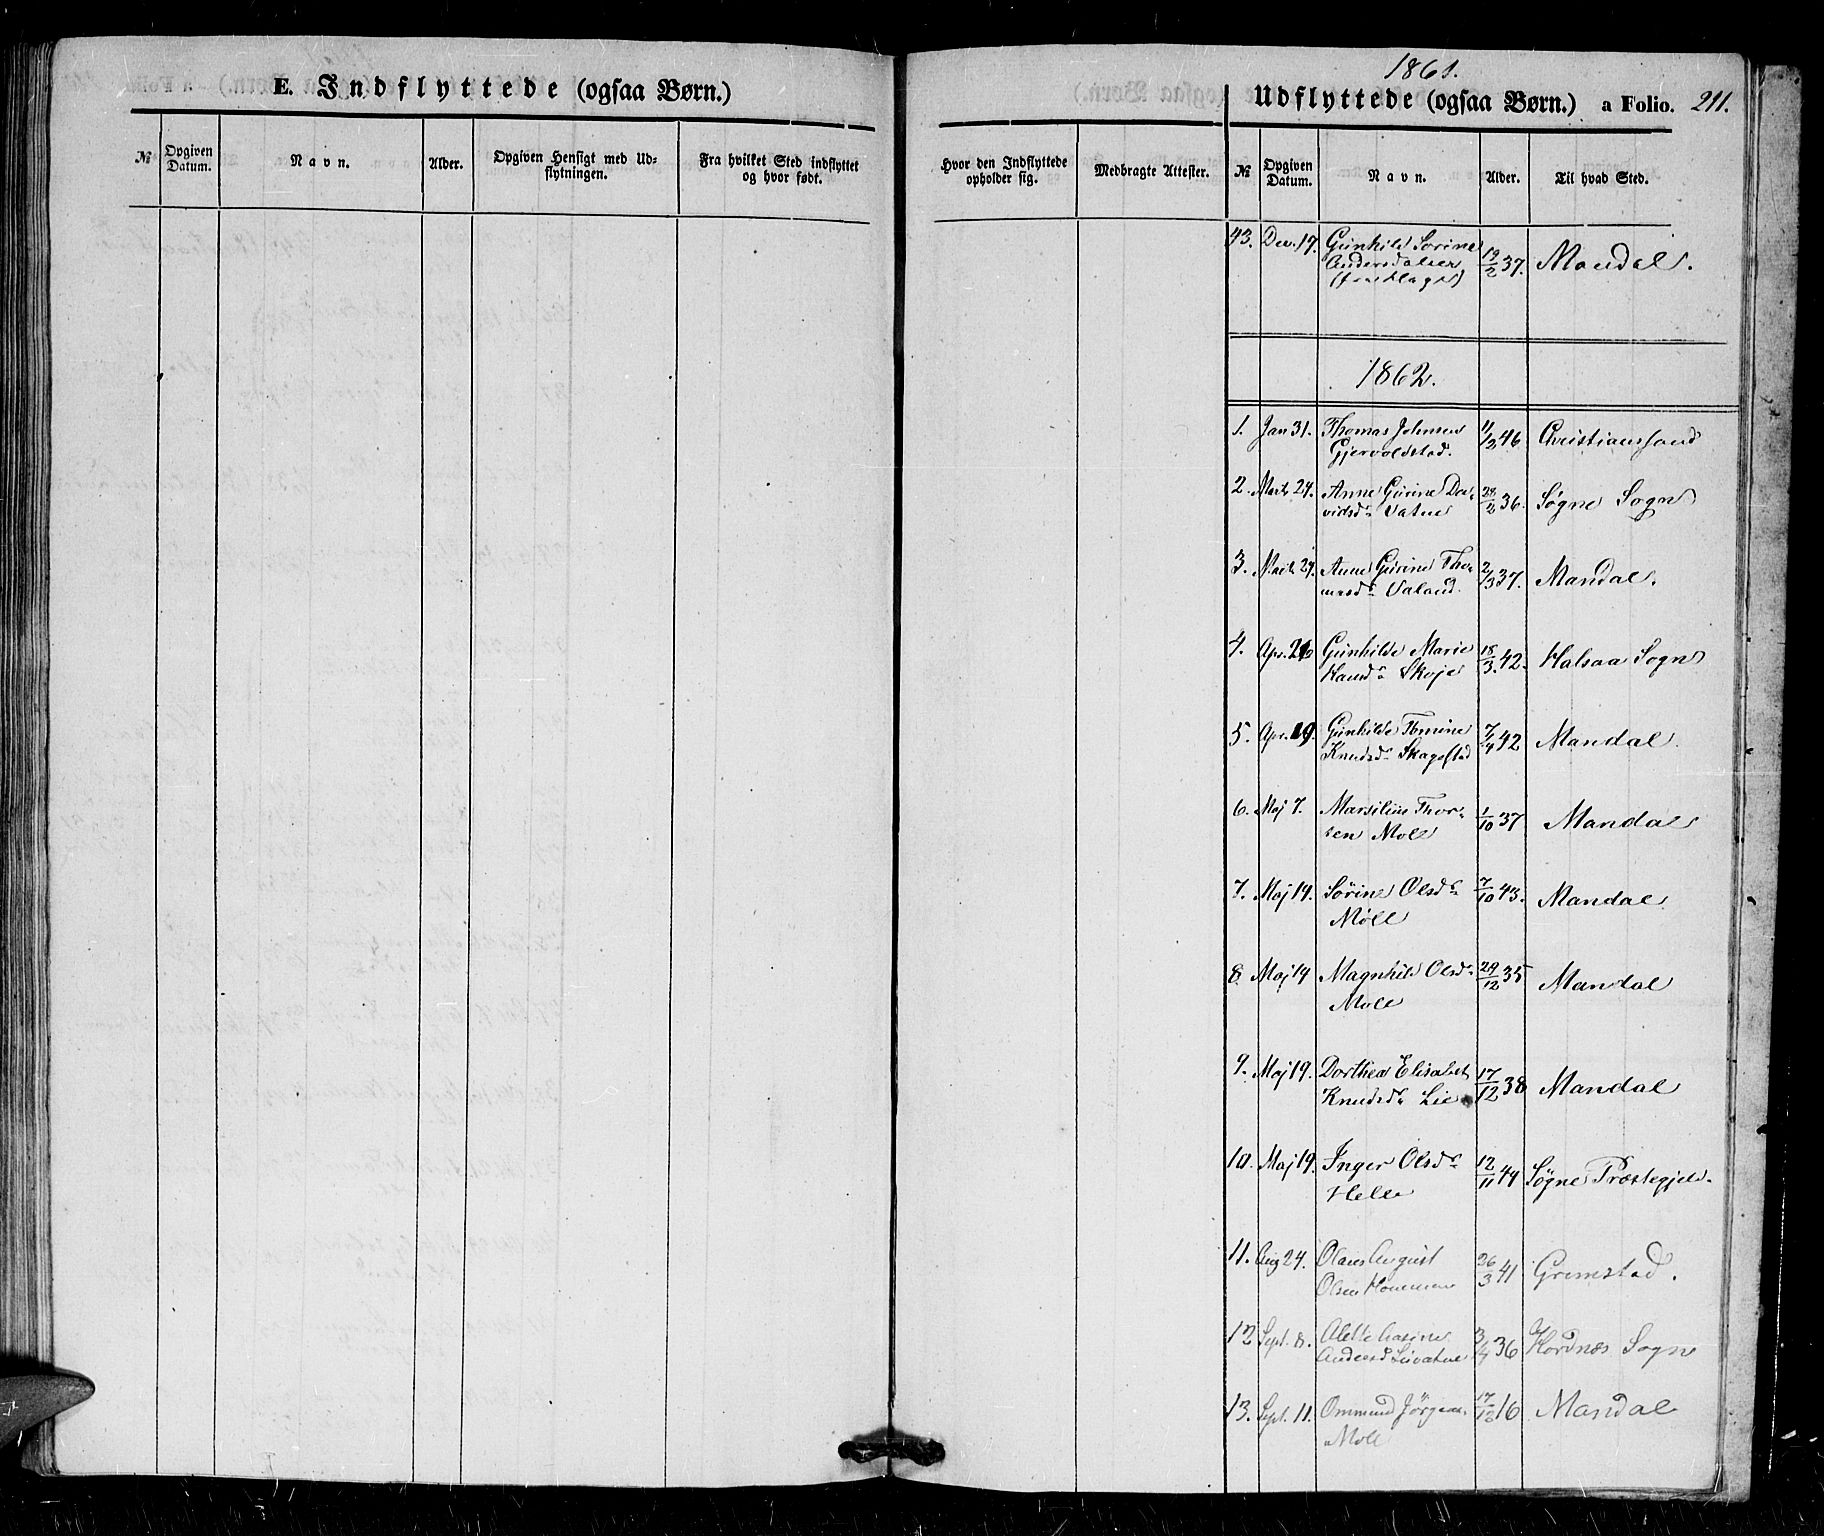 E. Indflyttede (ogsaa Børn.)
№
Opgiven Datum.
Navn.
Alder.
Opgiven Hensigt med Ud-
flytningen.
Fra hvilket Sted indflyttet
og hvor født.
1861.
Udflyttede (ogsaa Børn.) a Folio. 211.
Hvor den Indflyttede
opholder sig.
Medbragte Attester.
№
Opgiven Datum.
Navn.
Alder.
Til hvad Sted.
43. Dec. 17. Gunhild Sorine 19/2 37. Mandal.
Andersdatter
1862.
1. Jan 31. Thomas Johnsen 11/2 46. Christianssand
Gjervoldstad.
2. Marts 24. Anne Gurine Da- 28/2 36. Søgne Sogn
vidsd. Vatne
3. Marts 24. Anne Gurine Tho- 2/3 37. Mandal.
masd. Valand.
4. Apr. 26 Gunhilde Marie 18/3 42. Halsaa Sogn
Hansd. Skoje
5. Apr. 29. Gunhilde Tomine 7/4 42 Mandal.
Knudsd. Skagestad
6. Maj 7. Marsilius Thor- 1/10 37 Mandal
sen Moll
7. Maj 14. Sørine Olsd. 7/10 43. Mandal
Møll
8. Maj 14 Magnhild Olsd. 29/12 35 Mandal
Møll
9. Maj 19. Dorthea Elisabet 17/12 38 Mandal
Knudsd. Lie
10. Maj 19. Inger Olsd. 12/11 44 Søgne Præstegjeld.
Helle
11. Aug 24. Olaus August 26/3 41 Grimstad.
Olsen Hommen
12 Sept. 8. Alette 3/4 36 Hordnæs Sogn
Andersd
13. Sept. 11. Ommund Jörgens. 17/12 16 Mandal
Møll